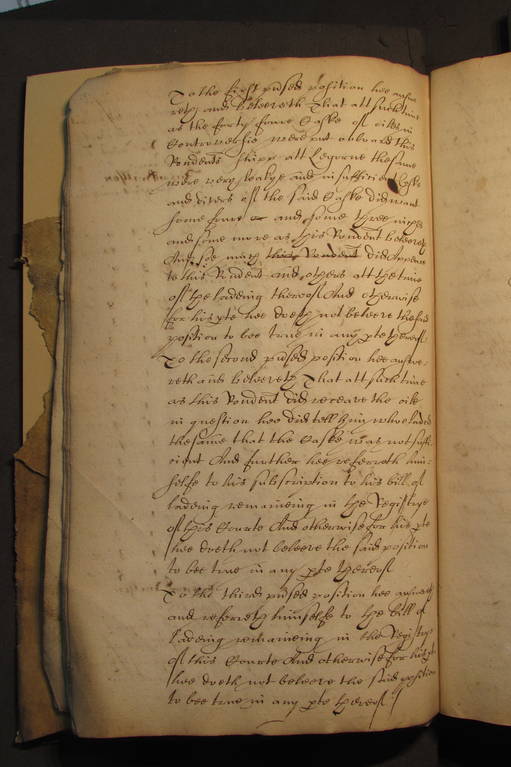 To the first p'used position hee answe
reth and beleeveth That att such time
as the forty foure Caske of oiles in
Controversie were put aboard this
Rondents shipp att Legorne the same
were very leakye and insufficient Caske
and divers of the said Caske did want
some foure and some three inches
and some more as this Rondent beleeveth
And soe much this Rondent did Appeare
to this Rondent and others att the time
of the ladeing thereof And otherwise
for his pte hee doeth not beleeve the said
position to bee true in any pte thereof
To the second p'used position hee answe-
reth and beleeveth That att such time
as this Rondent did receave the oile
in question hee did tell him who laded
the same that the Caske was not suffi
cient And further hee referreth him=
selfe to his subscription to his bill of
ladeing remaineing in the Registrye
of this Courte And otherwise for his pte
hee doeth not beleeve the said position
to bee true in any pte thereof
To the third p'used position hee answereth
and referreth himselfe to the bill of
ladeing remaineing in the Registrye
of this Courte And otherwise for his pte
hee doeth not beleeve the said position
to bee true in any pte thereof